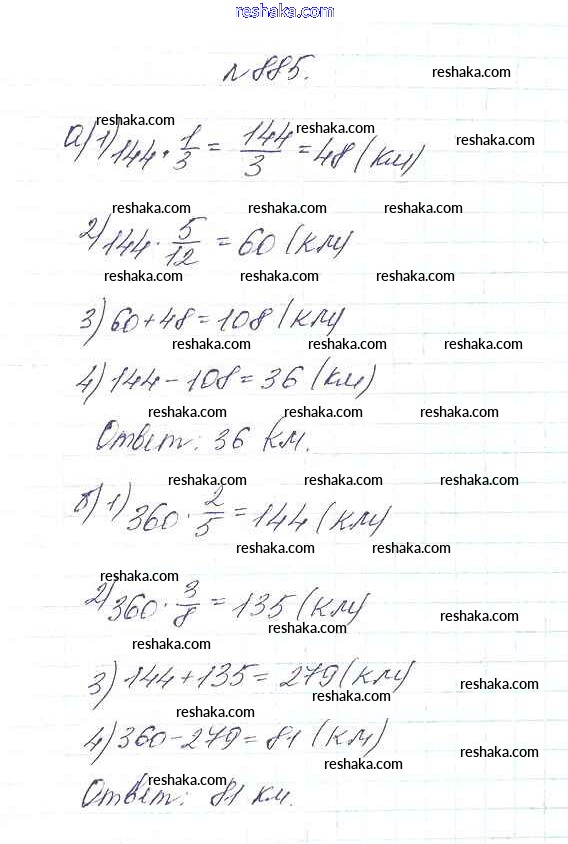 reshaka.com
№885.
reshaka.com
reshaka.com
reshaka.com
reshaka.com
а) 1) 144 · 1/3 = 144/3 = 48 (км)
reshaka.com reshaka.com reshaka.com
2) 144 · 5/12 = 60 (км)
reshaka.com reshaka.com reshaka.com
3) 60 + 48 = 108 (км)
reshaka.com reshaka.com reshaka.com
4) 144 - 108 = 36 (км)
reshaka.com reshaka.com reshaka.com
Ответ: 36 км.
reshaka.com reshaka.com reshaka.com
б) 1) 360 · 2/5 = 144 (км)
reshaka.com reshaka.com
reshaka.com
2) 360 · 3/8 = 135 (км)
reshaka.com
reshaka.com
reshaka.com
3) 144 + 135 = 279 (км)
reshaka.com
reshaka.com
reshaka.com
4) 360 - 279 = 81 (км)
reshaka.com
reshaka.com
reshaka.com
Ответ: 81 км.